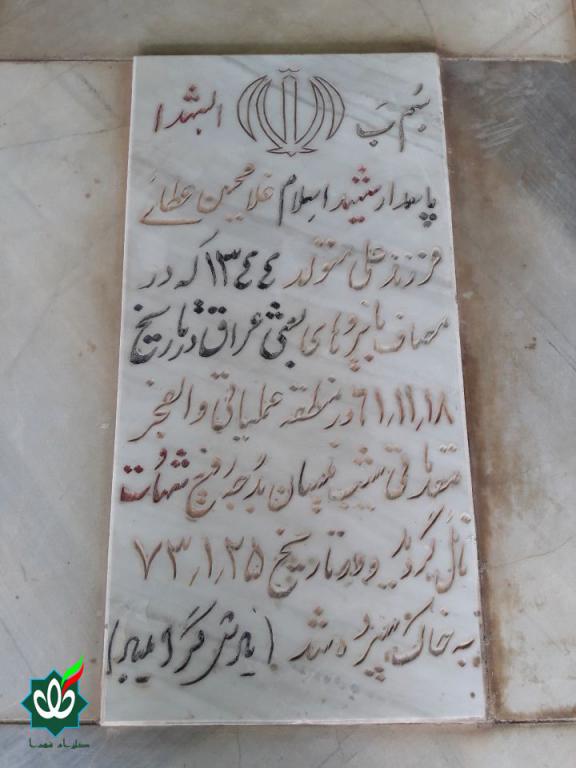 بسم رب الشهدا
پاسدار شهید اسلام غلامحسین عطائے
فرزند علی متولد ١٣٤٤ که در
مصاف با نیروهای بعثی عراق در تاریخ
٦١٫١١٫١٨ در منطقه عملیاتی والفجر
مقدماتی شیب نیسان بدرجه رفیع شهادت
نائل گردید و در تاریخ ٧٣٫١٫٢٥
به خاک سپرده شد (یادش گرامیباد)